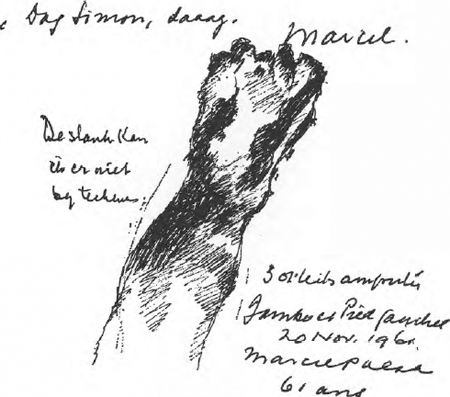 Dag Simon, daaag.
Marcel.
De stank kan
ik er niet
by tekenen.
3 orteils amputés
Jambe et Pied gauches
20 Nov. 196
61 ans